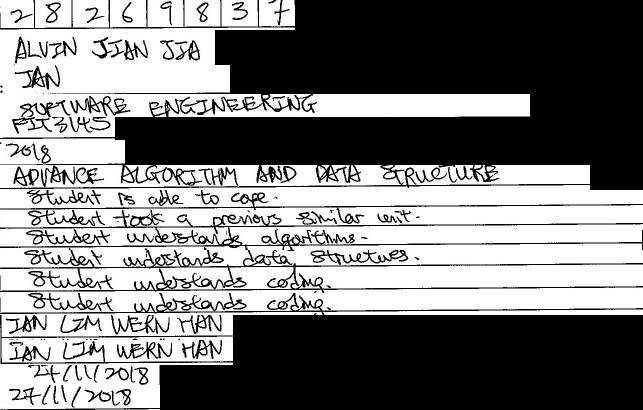 28269837
ALVIN JIAN JIA
JAN
SOFTWARE ENGINEERING
FIT3145
2018
ADVANCE ALGORITHM AND DATA STRUCTURE
Student is able to cope.
Student took a previous similar unit.
Student understands algorithms.
Student understands data structures.
Student understands coding.
Student understands coding.
IAN LIM WERN HAN
IAN LIM WERN HAN
27/11/2018
27/11/2018